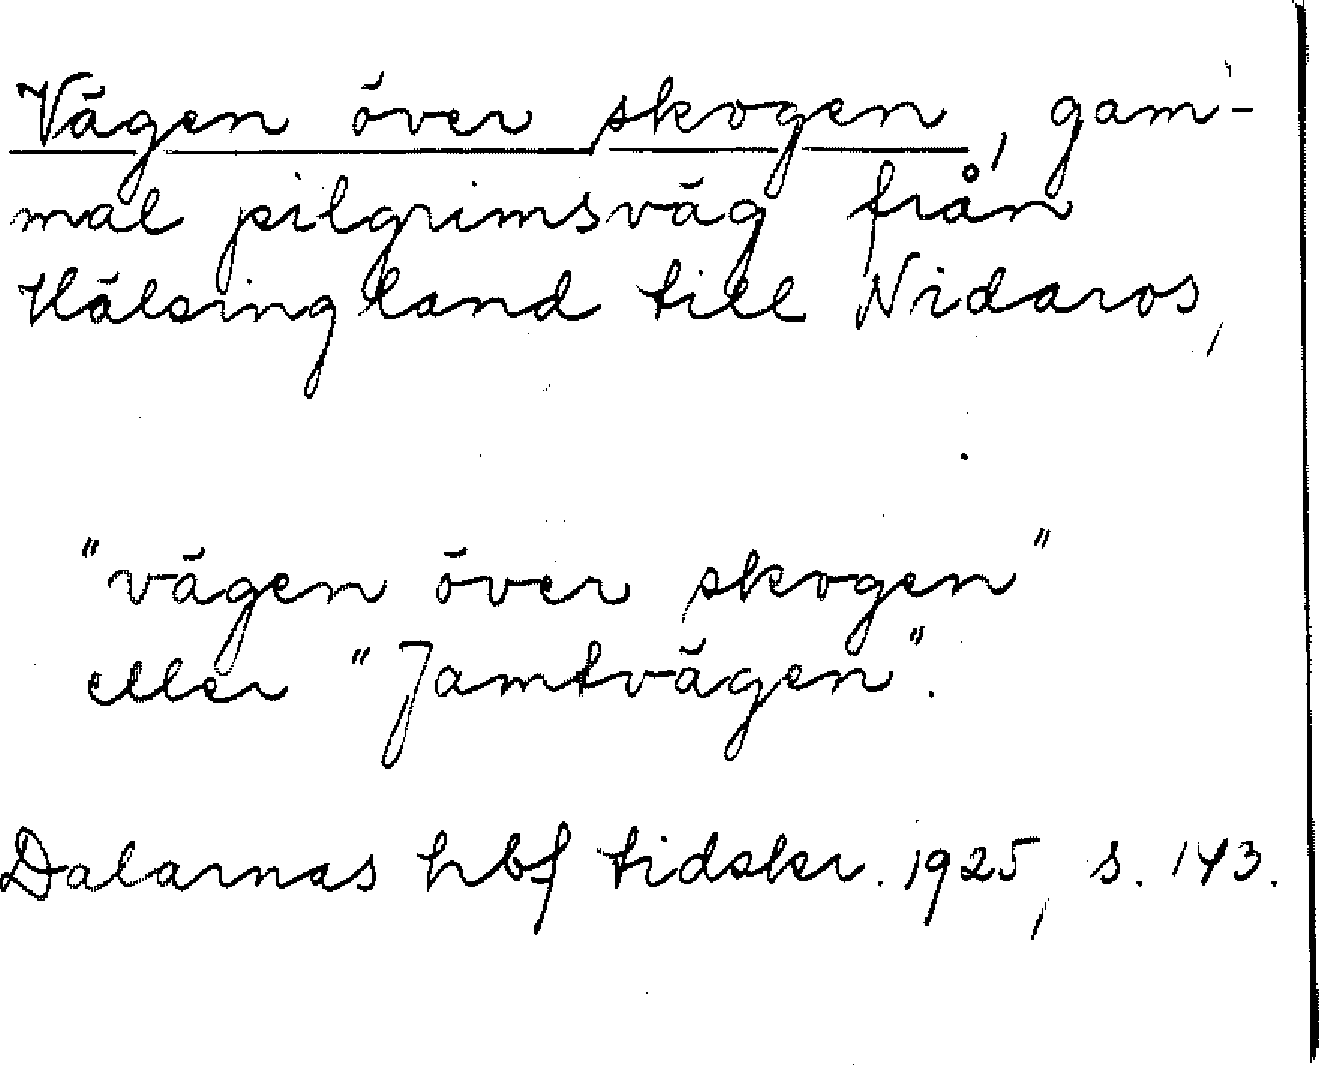 Vägen över skogen, gam-
mal pilgrimsväg från
Hälsingland till Nidaros,
"vägen över skogen"
eller "Jamtvägen".
Dalarnas hbf tidskr. 1925, s. 143.